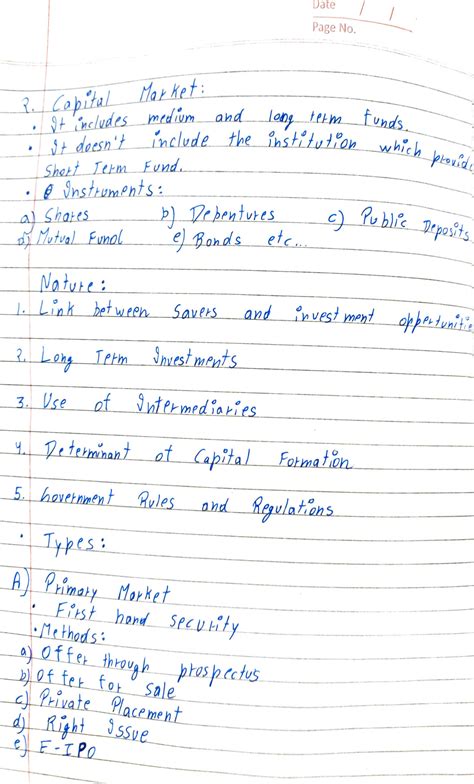 Date / /
Page No.
2. Capital Market:
• It includes medium and long term funds.
• It doesn't include the institution which provide
Short Term Fund.
• Instruments:
a) Shares b) Debentures c) Public Deposits
d) Mutual Fund e) Bonds etc...
Nature:
1. Link between Savers and investment opportunitie
2. Long Term Investments
3. Use of Intermediaries
4. Determinant of Capital Formation
5. Government Rules and Regulations
• Types:
A) Primary Market
• First hand security
• Methods:
a) Offer through prospectus
b) Offer for sale
c) Private Placement
d) Right Issue
e) E-IPO